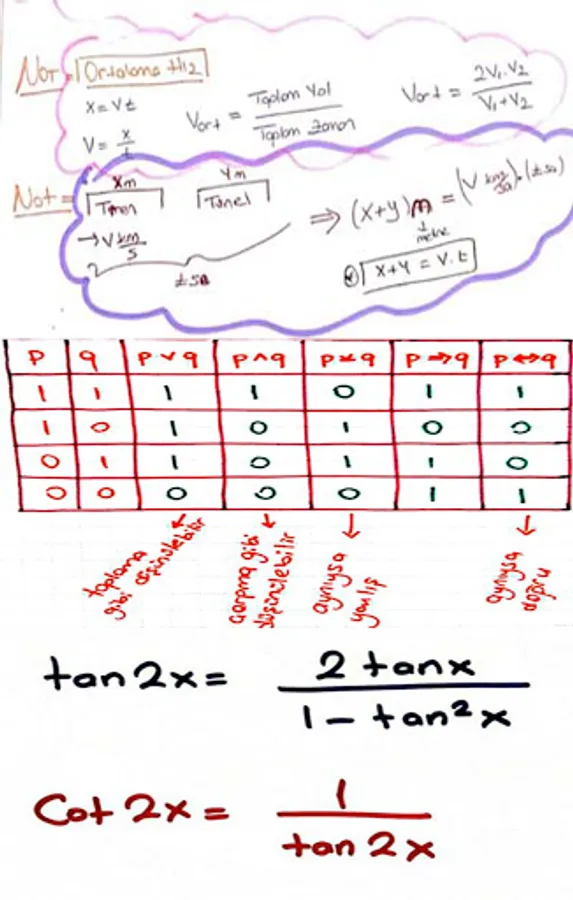 Not = Ortalama Hız
X = Vt
V = x/t
Vort = Toplam Yol / Toplam Zaman
Vort = 2V₁.V₂ / V₁+V₂
Not = Xm Ym
Tren Tünel
→ V km/s
t sa
⇒ (x+y)m = (V km/sa).(t sa)
metre
X+Y = V.t
p q p∨q p∧q p⊻q p⇒q p⇔q
1 1 1 1 0 1 1
1 0 1 0 1 0 0
0 1 1 0 1 1 0
0 0 0 0 0 1 1
toplama gibi düşünülebilir
çarpma gibi düşünülebilir
aynıysa yanlış
aynıysa doğru
tan2x = 2 tanx / 1 - tan²x
Cot 2x = 1 / tan 2x